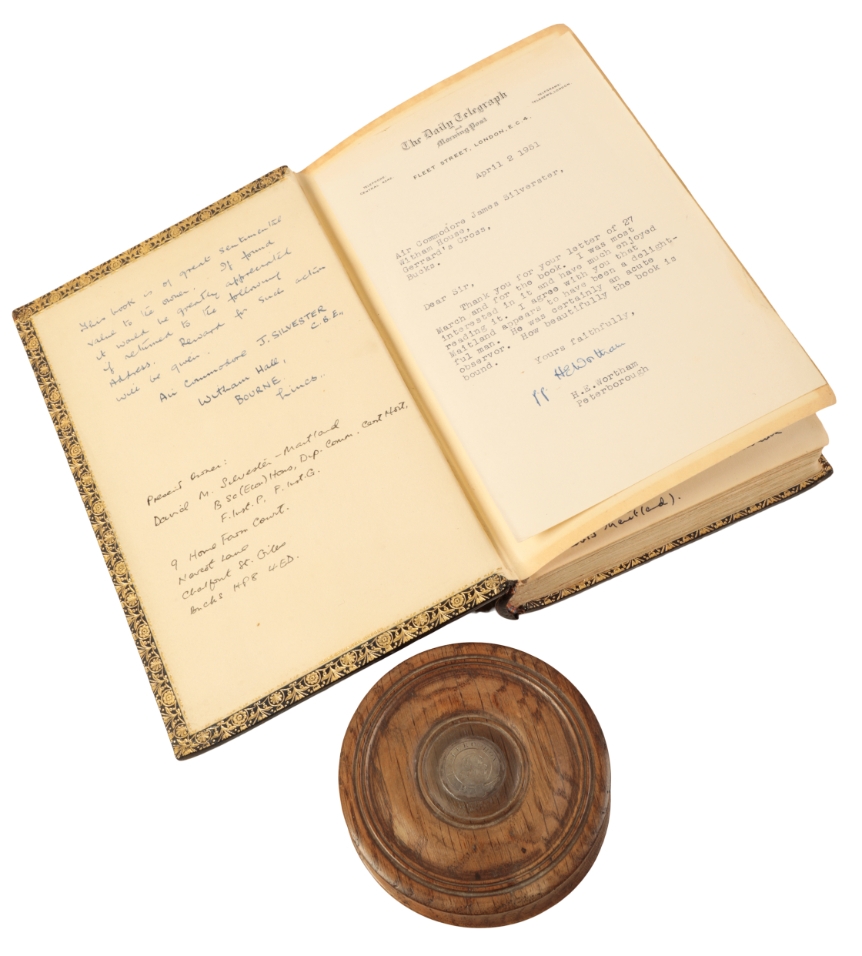 This book is of great sentimental
value to its owner. If found
it would be greatly appreciated
if returned to the following
Address. Reward for such action
will be given.
Air Commodore J. SILVESTER
C.B.E.
Witham Hall,
BOURNE
Lincs.
Present owner:
David M. Silvester-Maitland
B Sc (Econ) Hons, Dip. Comm. Cert Host,
F. Inst. P. F. Inst. G.
9 Home Farm Court.
Narcot Lane
Chalfont St. Giles
Bucks HP8 4ED.
The Daily Telegraph
and
Morning Post
FLEET STREET, LONDON, E.C.4.
April 2 1951
Air Commodore James Silverster,
Witham House,
Gerrard's Cross,
Bucks.
Dear Sir,
Thank you for your letter of 27
March and for the book. I was most
interested in it and have much enjoyed
reading it. I agree with you that
Maitland appears to have been a delight-
ful man. He was certainly an acute
observor. How beautifully the book is
bound.
Yours faithfully,
pp HEWortham
H.E.Wortham
Peterborough
Maitland).